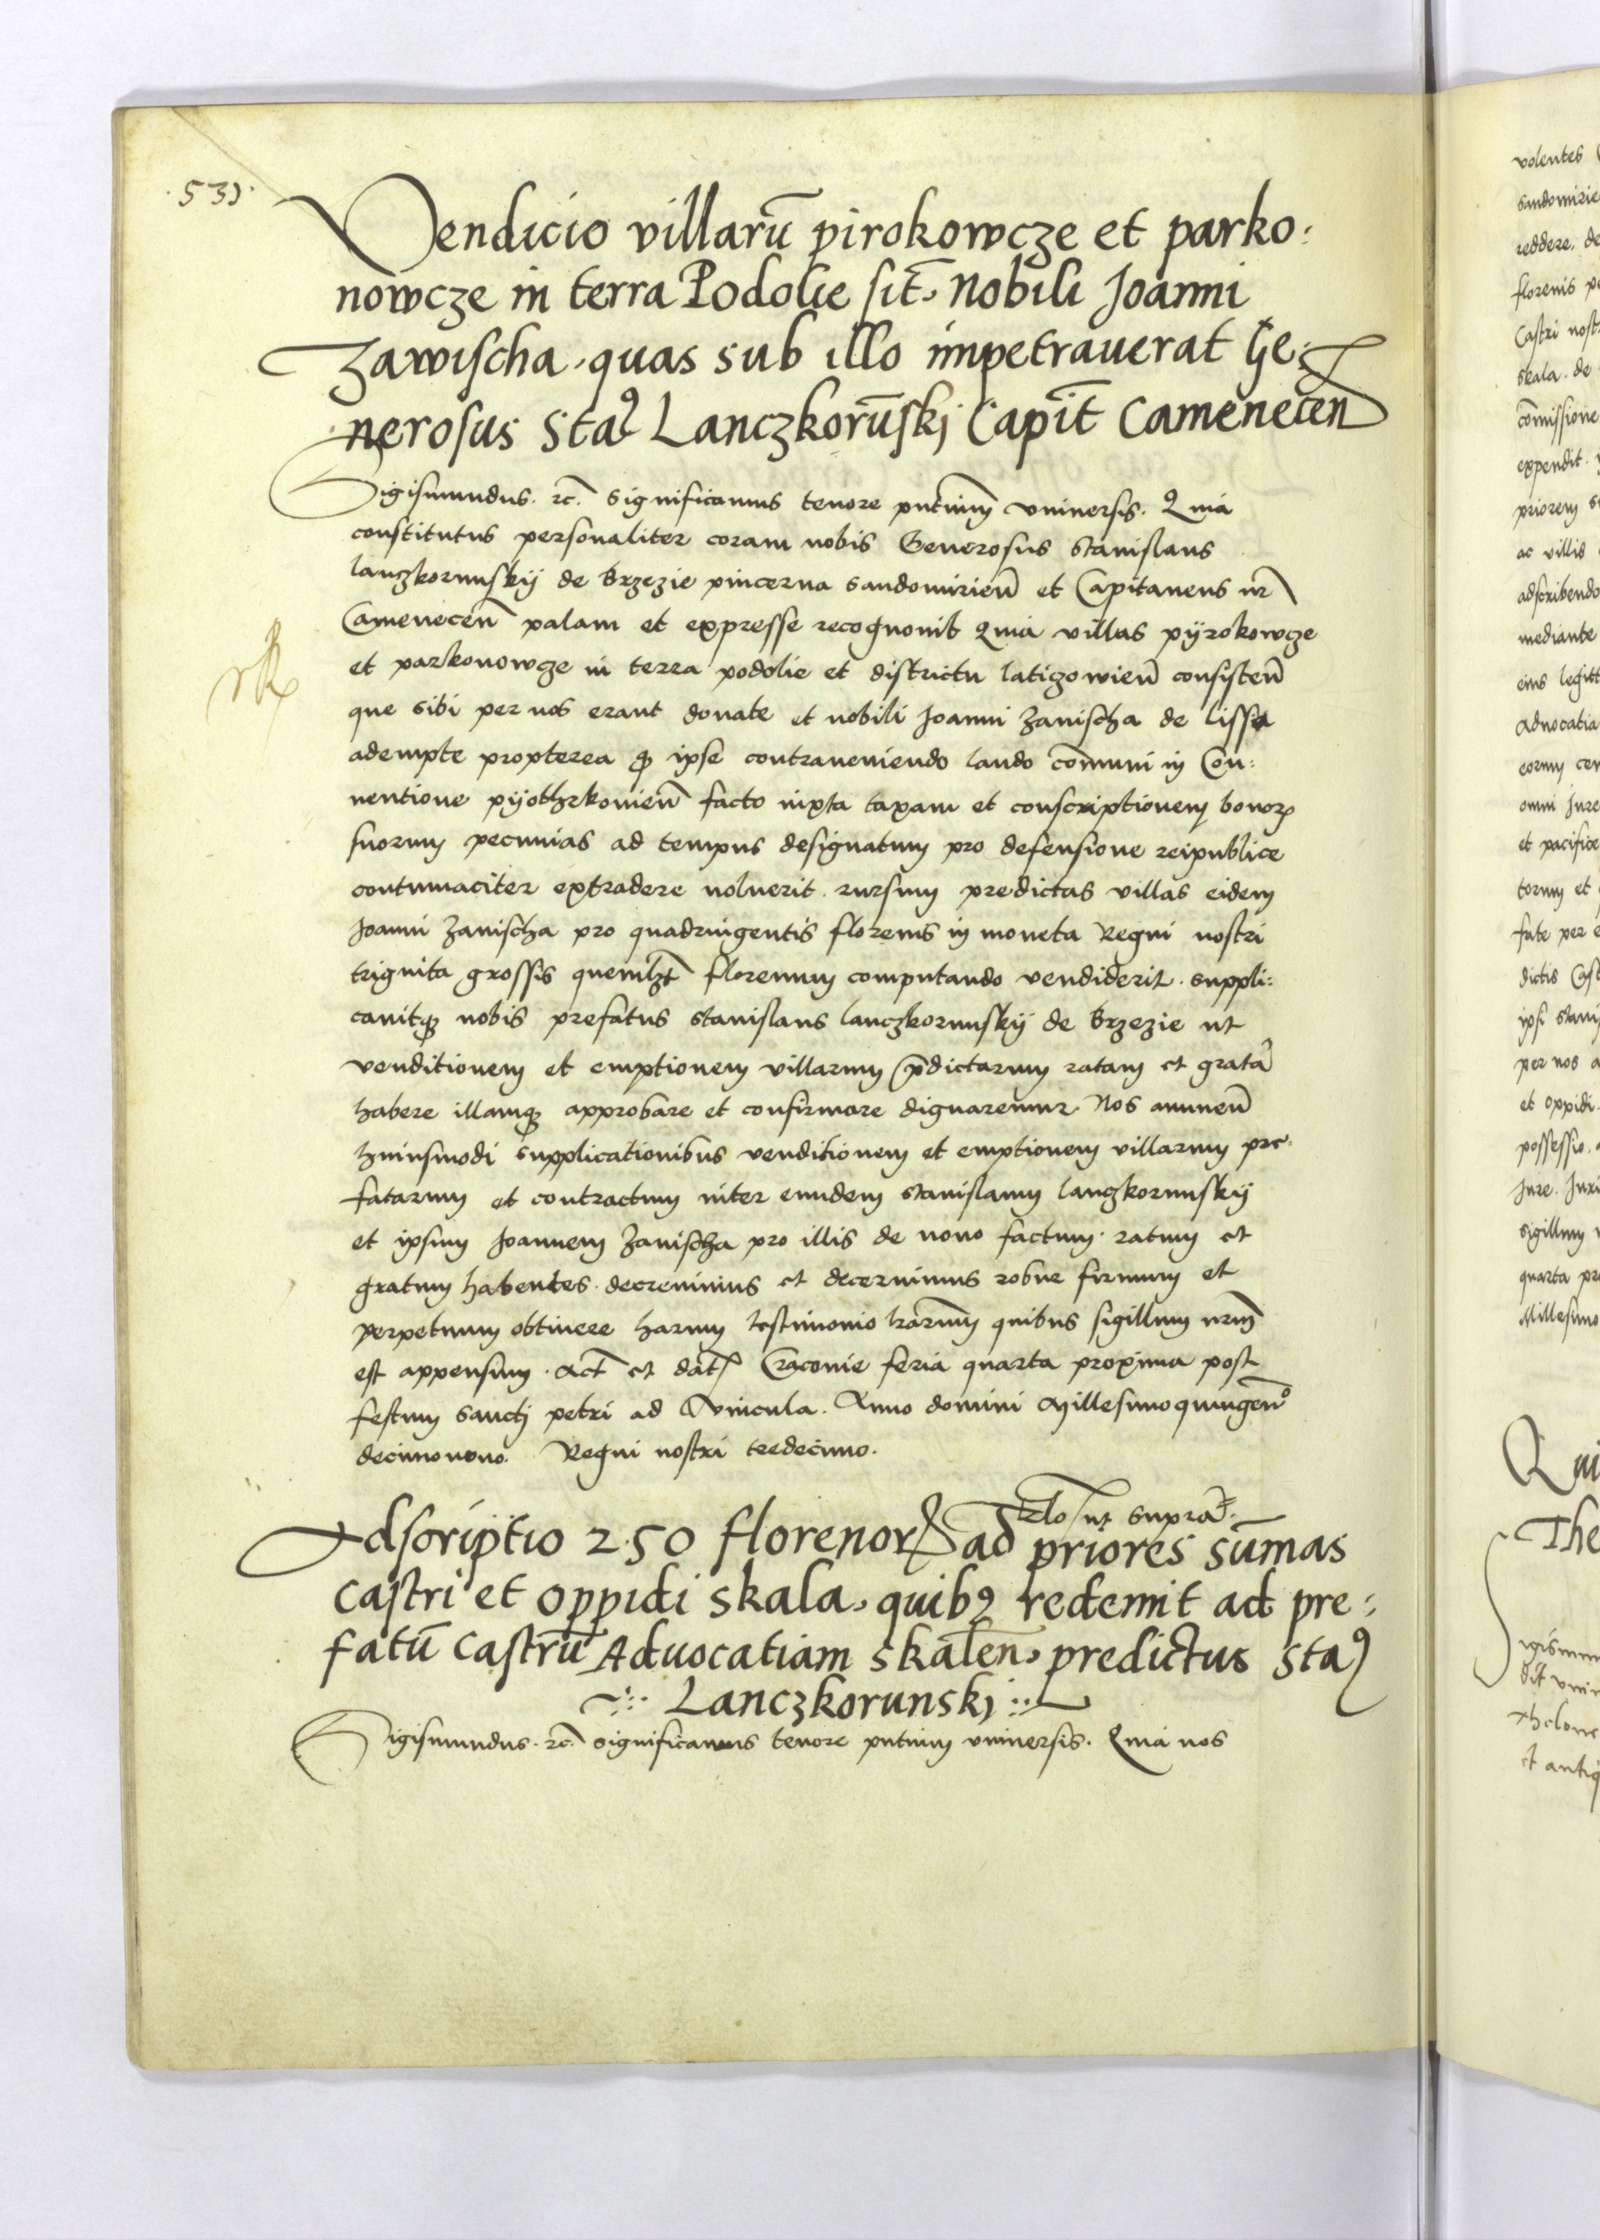 .531.
Vendicio villarū pirokowcze et parko:
nowcze in terra Podolie sit̄. nobili Joanni
Zawischa. quas sub illo impetrauerat Ge:
nerosus Staꝰ Lanczkorūskj Capit̄ Camenecen̄
Sigismundus. rc̄. significamus tenore pn̄tium vniuersis. Quia
constitutus personaliter coram nobis Generosus Stanislaus
lanczkorunskij de Brzezie pincerna sandomirien̄ et Capitaneus nr̄
Camenecen̄ palam et expresse recognouit Quia villas pijrokowcze
et parkonowcze in terra podolie et districtu laticzowien̄ consisten̄
que sibi per nos erant donate et nobili Joanni Zauischa de lissa
adempte propterea ꝙ ipse contraueniendo laudo com̄uni in Con:
uentione pijothrkouien̄ facto iuxta taxam et conscriptionem bonoꝝ
suorum pecunias ad tempus designatum pro defensione reipublice
contumaciter extradere noluerit. rursum predictas villas eidem
Joanni Zauischa pro quadringentis florenis in moneta Regni nostri
triginta grossis quemlꝫt florenum computando vendiderit. suppli:
cauitqꝫ nobis prefatus Stanislaus lanczkorunskij de Brzezie ut
venditionem et emptionem villarum p̄dictarum ratam et gratā
habere illamqꝫ approbare et confirmare dignaremur. Nos annuen̄
huiusmodi supplicationibus venditionem et emptionem villarum pre:
fatarum et contractum inter eundem Stanislaum lanczkorunskij
et ipsum Joannem Zauischa pro illis de nouo factum. ratum et
gratum habentes. decreuimus et decernimus robur firmum et
perpetuum obtinere harum testimonio lrārum quibus sigillum nrm̄
est appensum. Act̄ et dat̄ Cracouie feria quarta proxima post
festum sanctj petri ad Vincula. Anno domini Millesimoquingen̄o
decimonono. Regni nostri tredecimo.
Rl̄o ut suprā.
Adscriptio 250 florenorꝝ ad priores sūmas
castri et oppidi skala. quibꝰ redemit ad pre:
fatū castrū Aduocatiam skalen̄. predictus Staꝰ
Lanczkorunskj
Sigismundus. rc̄. significamus tenore pn̄tium vniuersis. Quia nos
volentes
reddere. de
Castri nostr
skala. de
com̄issione
expendit.
priorem
ac villis
adscribendo
mediante
Aduocatia
et pacifice
torum et
per nos a
et oppidi.
possessio.
sigillum
quarta pr
Millesimo
Qui
The